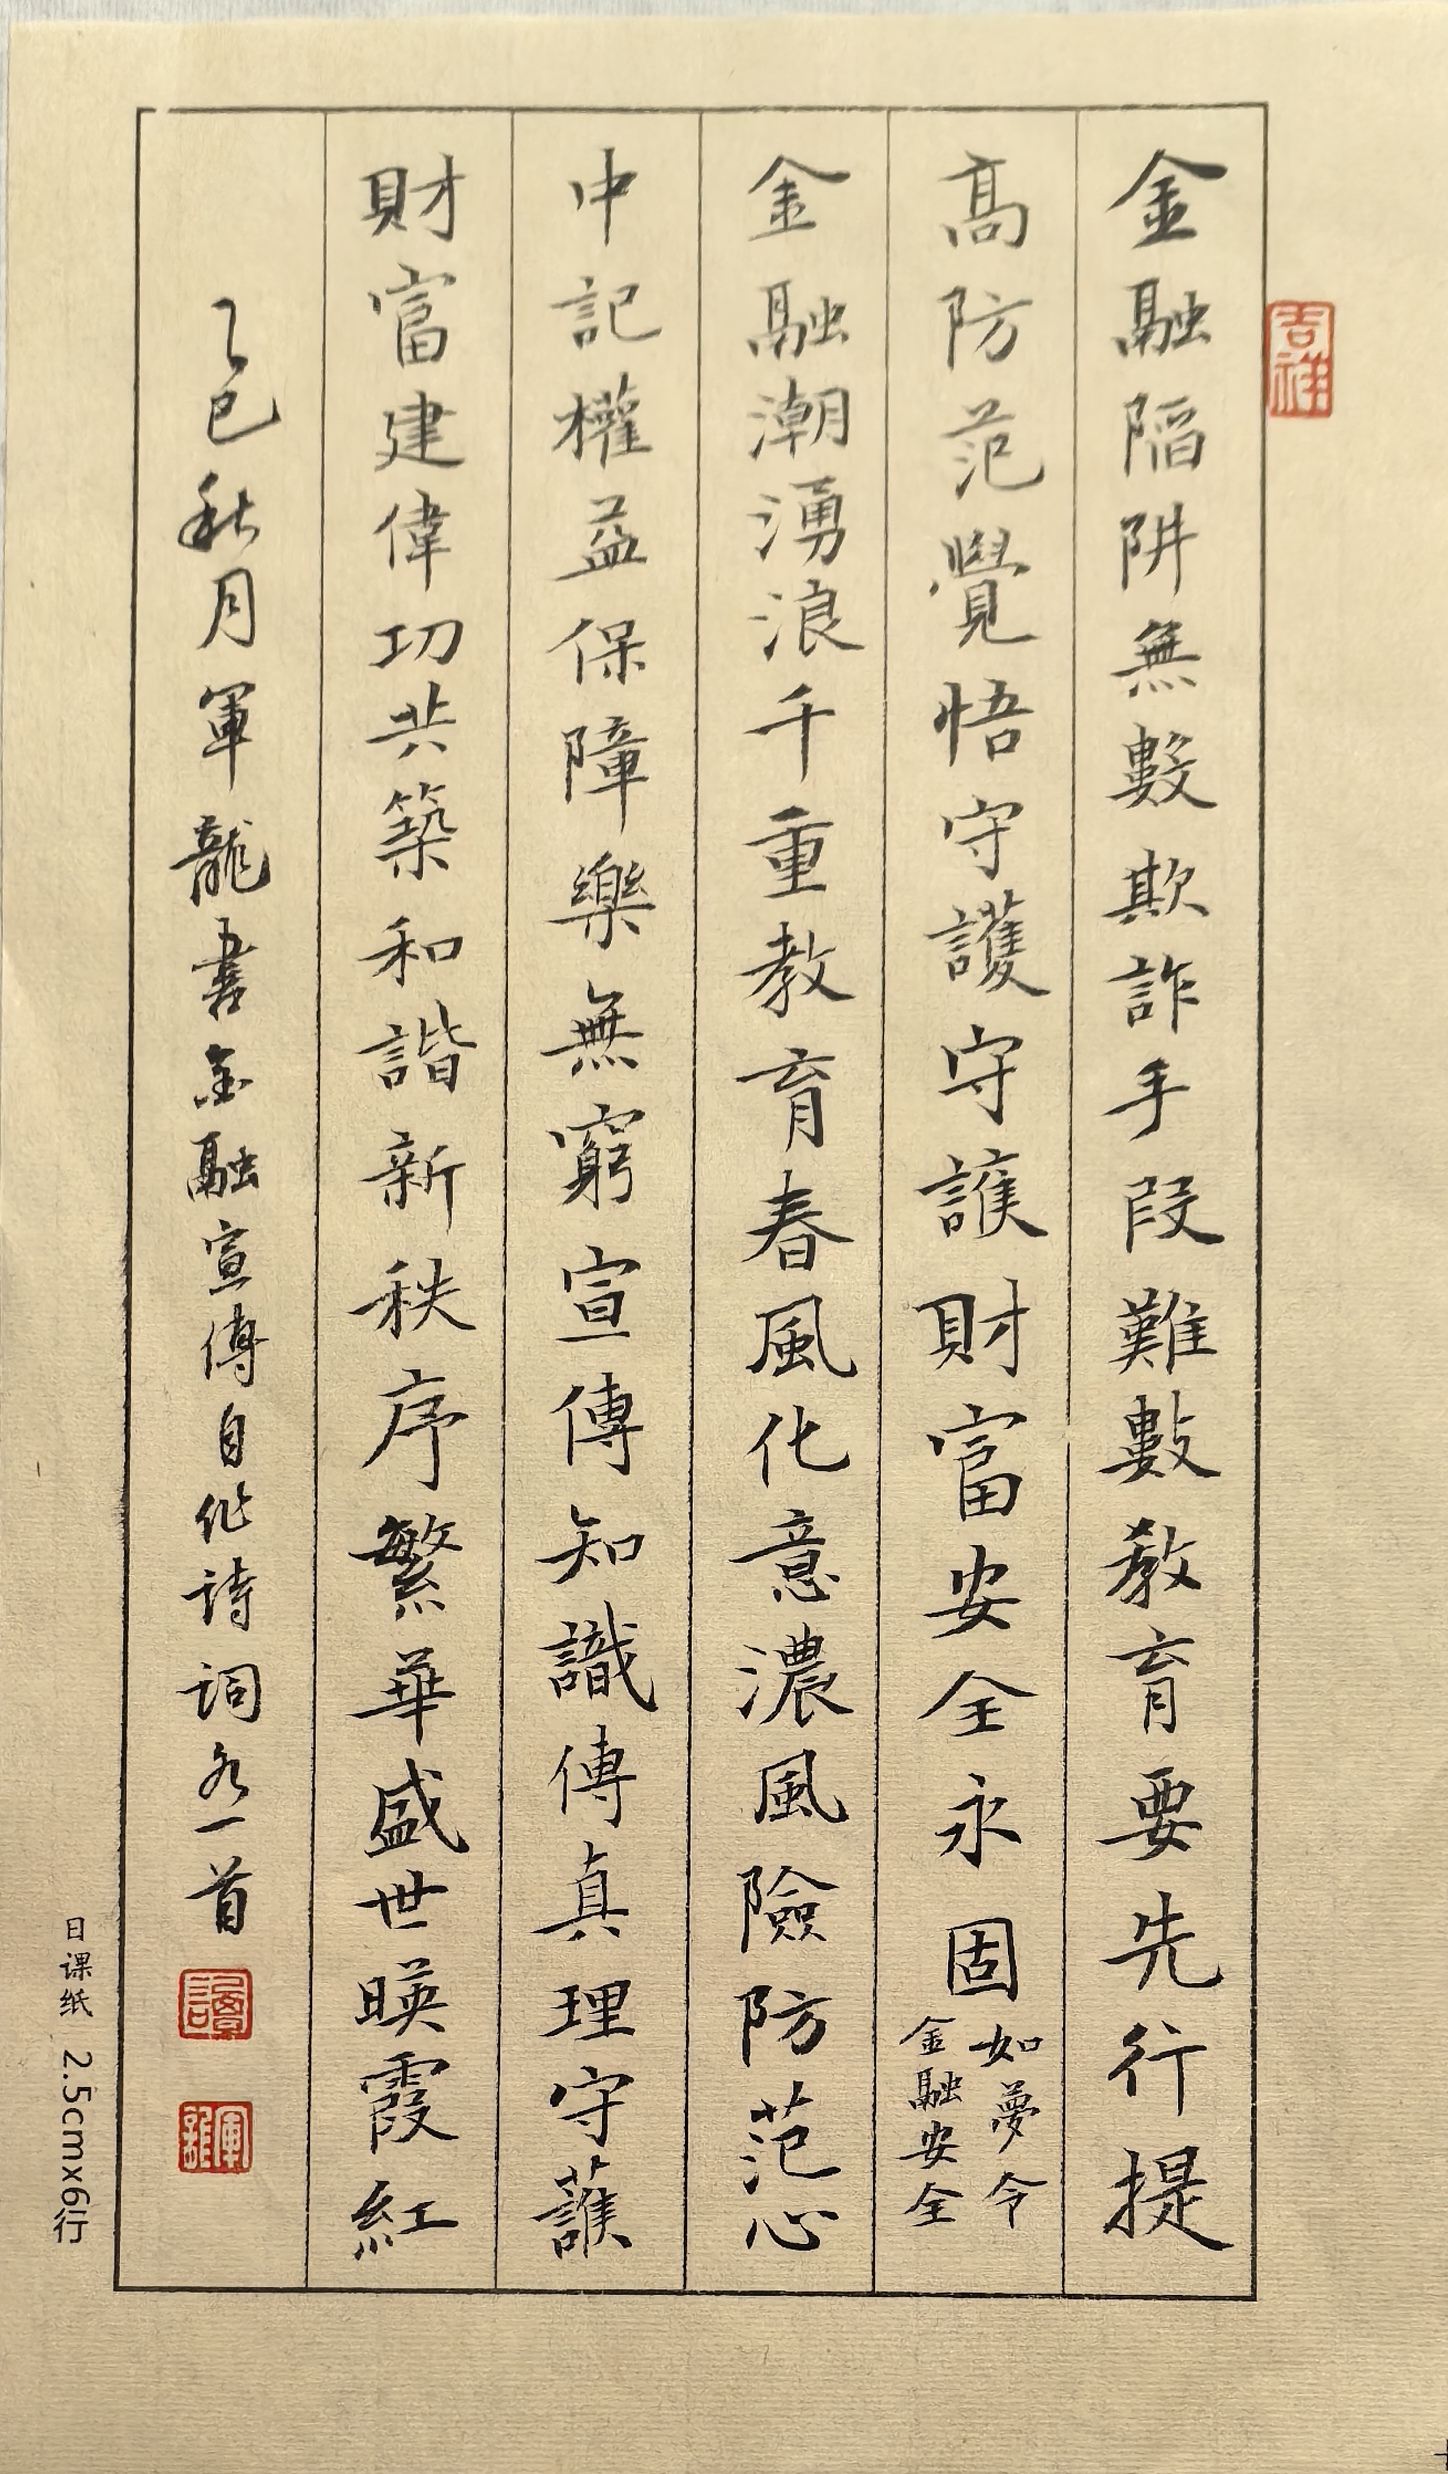 金融陷阱無數欺詐手段難數教育要先行提
高防范覺悟守護守護財富安全永固
如夢令
金融安全
金融潮湧浪千重教育春風化意濃風險防范心
中記權益保障樂無窮宣傳知識傳真理守護
財富建偉功共築和諧新秩序繁華盛世暎霞紅
乙巳秋月軍龍書金融宣傳自作詩詞各一首
吉祥
譚
軍龍
日课纸 2.5cmx6行